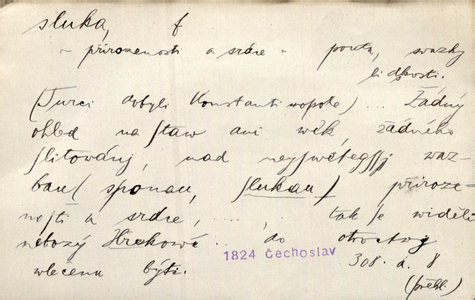 sluka, f
- přirozenosti a srdce = pouta, svazky
lidskosti.
(Turci dobyli Konstantinopole) ... Žádný
ohled na ſtaw ani wěk, žádného
ſlitowánj, nad neyſwětěgſſj waz-
bau (sponau, ſlukau) přiroze-
noſti a srdce, ..., tak je widěli
nebozý Hrekowé ... do otroctwj
wlečenu býti.
1824 Čechoslav
308. a. 8
(překl.)